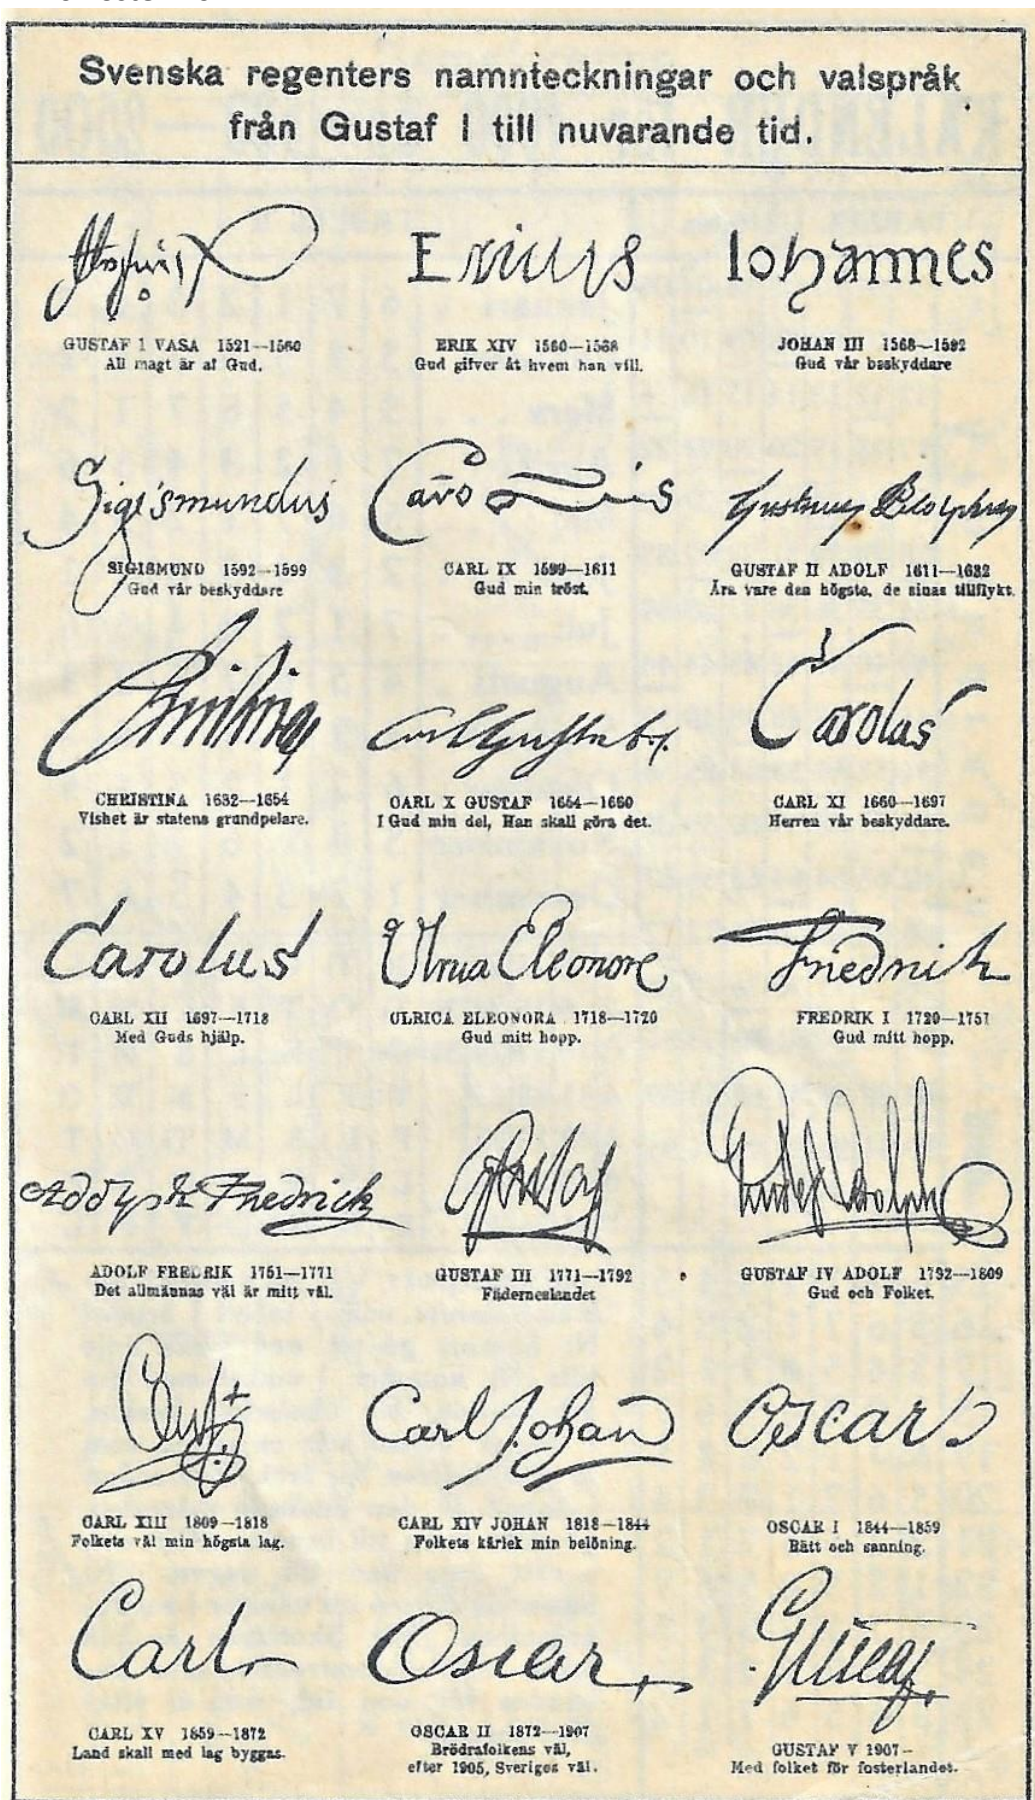 Svenska regenters namnteckningar och valspråk
från Gustaf I till nuvarande tid.
Ericus
Iohannes
GUSTAF I VASA 1521—1560
All magt är af Gud.
ERIK XIV 1560—1568
Gud gifver åt hvem han vill.
JOHAN III 1568—1592
Gud vår beskyddare
Sigismundus
SIGISMUND 1592—1599
Gud vår beskyddare
CARL IX 1599—1611
Gud min tröst.
GUSTAF II ADOLF 1611—1632
Ära vare den högste, de sinas tillflykt.
Carolus
CHRISTINA 1632—1654
Vishet är statens grundpelare.
CARL X GUSTAF 1654—1660
I Gud min del, Han skall göra det.
CARL XI 1660—1697
Herren vår beskyddare.
Carolus
Ulrica Eleonore
Friedrich
CARL XII 1697—1718
Med Guds hjälp.
ULRICA ELEONORA 1718—1720
Gud mitt hopp.
FREDRIK I 1720—1751
Gud mitt hopp.
Adolph Fredrick
Gustaf
Gustaf Adolph
ADOLF FREDRIK 1751—1771
Det allmännas väl är mitt väl.
GUSTAF III 1771—1792
Fäderneslandet
GUSTAF IV ADOLF 1792—1809
Gud och Folket.
Carl Johan
Oscar
CARL XIII 1809—1818
Folkets väl min högsta lag.
CARL XIV JOHAN 1818—1844
Folkets kärlek min belöning.
OSCAR I 1844—1859
Rätt och sanning.
Carl
Oscar
Gustaf
CARL XV 1859—1872
Land skall med lag byggas.
OSCAR II 1872—1907
Brödrafolkens väl,
efter 1905, Sveriges väl.
GUSTAF V 1907—
Med folket för fosterlandet.